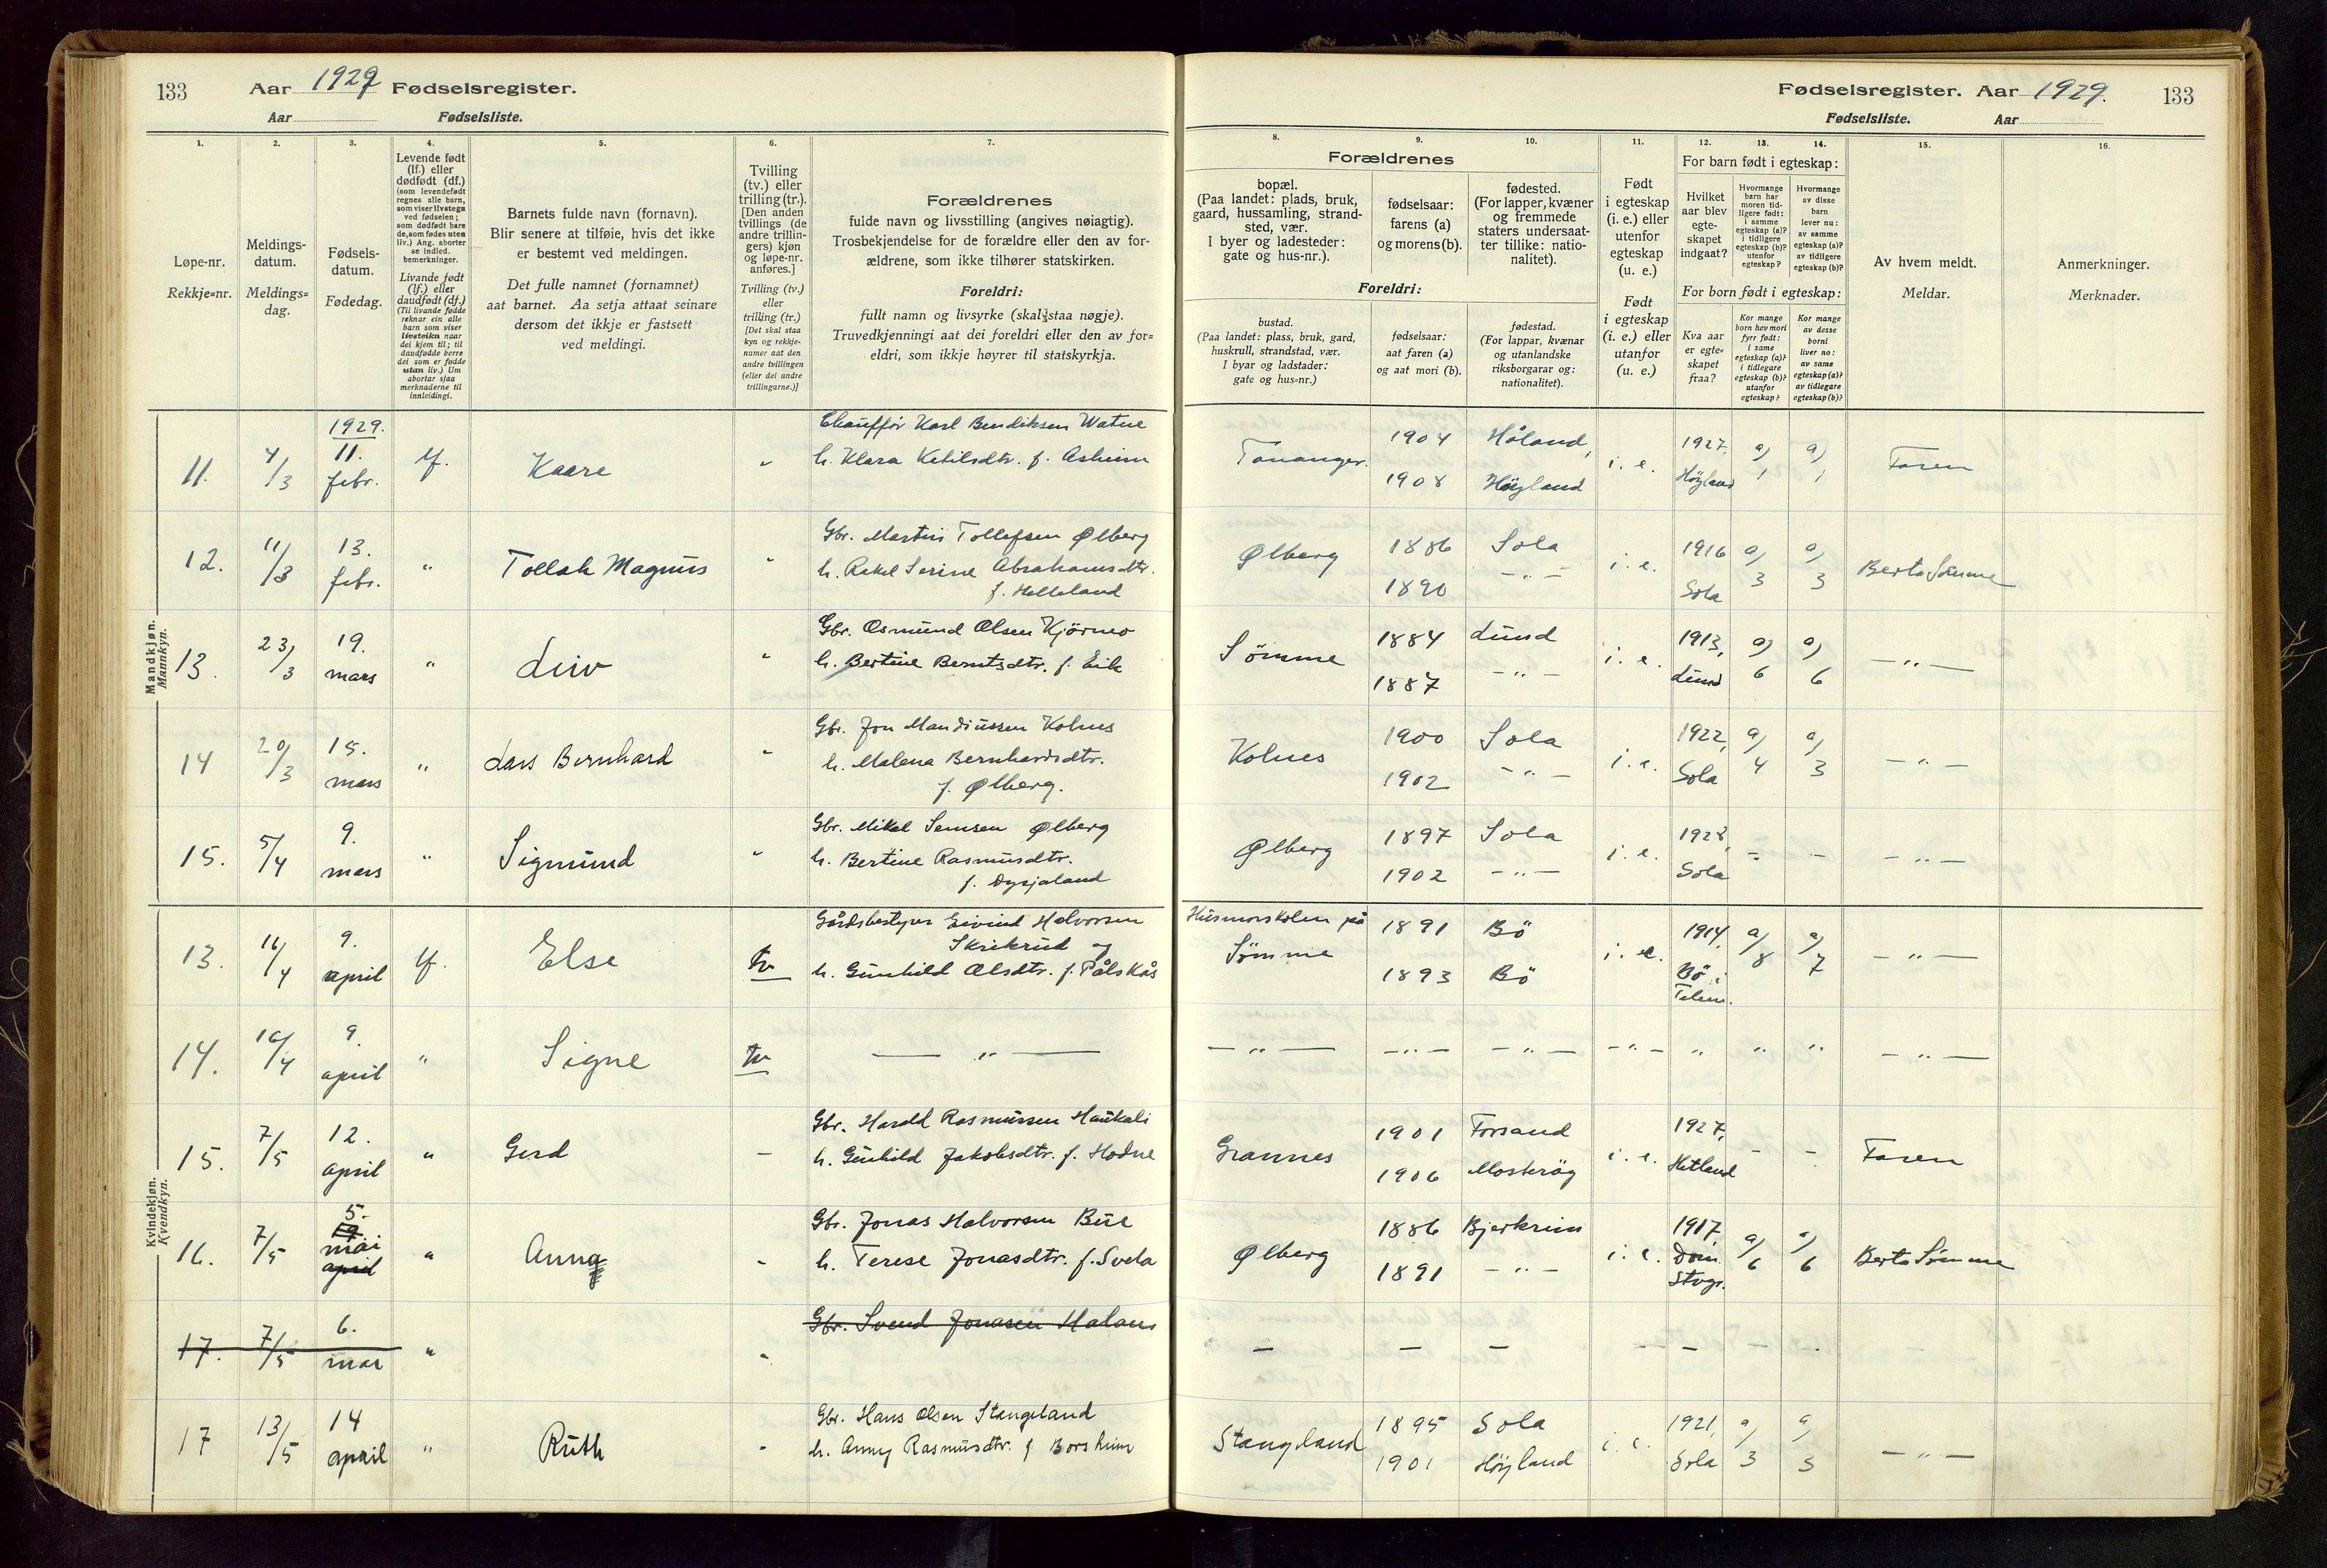 133 Aar 1929 Fødselsregister.
Aar Fødselsliste.
1. 2. 3. 4. 5. 6. 7.
Løpe-nr.
Rekkje=nr.
Meldings-
datum.
Meldings=
dag.
Fødsels-
datum.
Fødedag.
Levende født
(lf.) eller
dødfødt (df.)
(som levendefødt
regnes alle barn,
som viser livstegn
ved fødselen;
som dødfødt bare
de, som fødes uten
liv.) Ang. aborter
se indled.
bemerkninger.
Livande født
(lf.) eller
daudfødt (df.)
(Til livande fødde
reknar ein alle
barn som viser
livsteikn naar
dei kjem til; til
daudfødde berre
dei som er fødde
utan liv.) Um
abortar sjaa
merknaderne til
innleidingi.
Barnets fulde navn (fornavn).
Blir senere at tilføie, hvis det ikke
er bestemt ved meldingen.
Det fulle namnet (fornamnet)
aat barnet. Aa setja attaat seinare
dersom det ikkje er fastsett
ved meldingi.
Tvilling
(tv.) eller
trilling (tr.).
[Den anden
tvillings (de
andre trillin-
gers) kjøn
og løpe-nr.
anføres.]
Tvilling (tv.)
eller
trilling (tr.)
[Det skal staa
kyn og rekkje-
numer aat den
andre tvillingen
(eller dei andre
trillingarne.)]
Forældrenes
fulde navn og livsstilling (angives nøiagtig).
Trosbekjendelse for de forældre eller den av for-
ældrene, som ikke tilhører statskirken.
Foreldri:
fullt namn og livsyrke (skal staa nøgje).
Truvedkjenningi aat dei foreldri eller den av for=
eldri, som ikkje høyrer til statskyrkja.
Mandkjøn.
Mannkyn.
11. 4/3 1929. 11. febr. lf. Kaare "
Chauffør Karl Bendiksen Watne
h. Klara Ketilsdtr. f. Asheim
12. 11/3 13. febr. " Tollak Magnus "
Gbr. Martin Tollefsen Ølberg
h. Rakel Serine Abrahamsdtr.
f. Helleland
13. 23/3 19. mars " Liv "
Gbr. Osmund Olsen Kjørmo
h. Bertine Berntsdtr. f. Eik
14 20/3 15. mars " Lars Bernhard "
Gbr. Jon Mandiussen Kolnes
h. Malena Bernhardsdtr.
f. Ølberg.
15. 5/4 9. mars " Sigmund "
Gbr. Mikal Samsen Ølberg
h. Bertine Rasmusdtr.
f. Dysjaland
Kvindekjøn.
Kvendkyn.
13. 16/4 9. april lf. Else tv
Gårdsbestyrer Eivind Halvorsen
Skrikrud og
h. Gunhild Olsdtr. f. Pålskås
14. 16/4 9. april " Signe tv
— " —
15. 7/5 12. april " Gerd -
Gbr. Harald Rasmussen Haukali
h. Gunhild Jakobsdtr. f. Hodne
16. 7/5 5. mai april " Anna -
Gbr. Jonas Halvorsen Bue
h. Terese Jonasdtr. f. Svela
17. 7/5 6. mai " -
Gbr. Svend Jonasen
17 13/5 14 april " Ruth -
Gbr. Hans Olsen Stangeland
h. Anny Rasmusdtr. f Borsheim
Fødselsregister. Aar 1929. 133
Fødselsliste. Aar
8. 9. 10. 11. 12. 13. 14. 15. 16.
Forældrenes
bopæl.
(Paa landet: plads, bruk,
gaard, hussamling, strand-
sted, vær.
I byer og ladesteder:
gate og hus-nr.).
fødselsaar:
farens (a)
og morens (b).
fødested.
(For lapper, kvæner
og fremmede
staters undersaat-
ter tillike: natio-
nalitet).
Foreldri:
bustad.
(Paa landet: plass, bruk, gard,
huskrull, strandstad, vær.
I byar og ladstader:
gate og hus=nr.)
fødselsaar:
aat faren (a)
og aat mori (b).
fødestad.
(For lappar, kvænar
og utanlandske
riksborgarar og:
nationalitet).
Født
i egteskap
(i. e.) eller
utenfor
egteskap
(u. e.)
Født
i egteskap
(i. e.) eller
utanfor
(u. e.)
For barn født i egteskap:
Hvilket
aar blev
egte-
skapet
indgaat?
Hvormange
barn har
moren tid-
ligere født:
i samme
egteskap (a)?
i tidligere
egteskap (b)?
utenfor
egteskap?
Hvormange
av disse
barn
lever nu:
av samme
egteskap (a)?
av tidligere
egteskap (b)?
For born født i egteskap:
Kva aar
er egte=
skapet
fraa?
Kor mange
born hev mori
fyrr født:
i same
egteskap (a)?
i tidlegare
egteskap (b)?
utanfor
egteskap?
Kor mange
av desse
borni
liver no:
av same
egteskap (a)?
av tidlegare
egteskap (b)?
Av hvem meldt.
Meldar.
Anmerkninger.
Merknader.
Tananger. 1904 1908 Håland, Høyland i. e. 1927, Høyland a) 1 a) 1 Faren
Ølberg 1886 1890 Sola - " - i. e. 1916 Sola a) 3 a) 3 Berta Sømme
Sømme 1884 1887 Lund - " - i. e. 1913, Lund a) 6 a) 6 — " —
Kolnes 1900 1902 Sola - " - i. e. 1922, Sola a) 4 a) 3 — " —
Ølberg 1897 1902 Sola - " - i. e. 1928, Sola - - — " —
Husmorskolen på Sømme 1891 1893 Bö Bö i. e. 1914, Bö i Telem. a) 8 a) 7 — " —
— " — - " - - " - - " - " " " — " —
Grannes 1901 1906 Forsand Mosterøy i. e. 1927, Hetland - - Faren
Ølberg 1886 1891 Bjerkreim - " - i. e. 1917, Dom. Stvgr. a) 6 a) 6 Berta Sømme
— — — — — — —
Stangeland 1895 1901 Sola Høyland i. e. 1921, Sola a) 3 a) 3 — " —